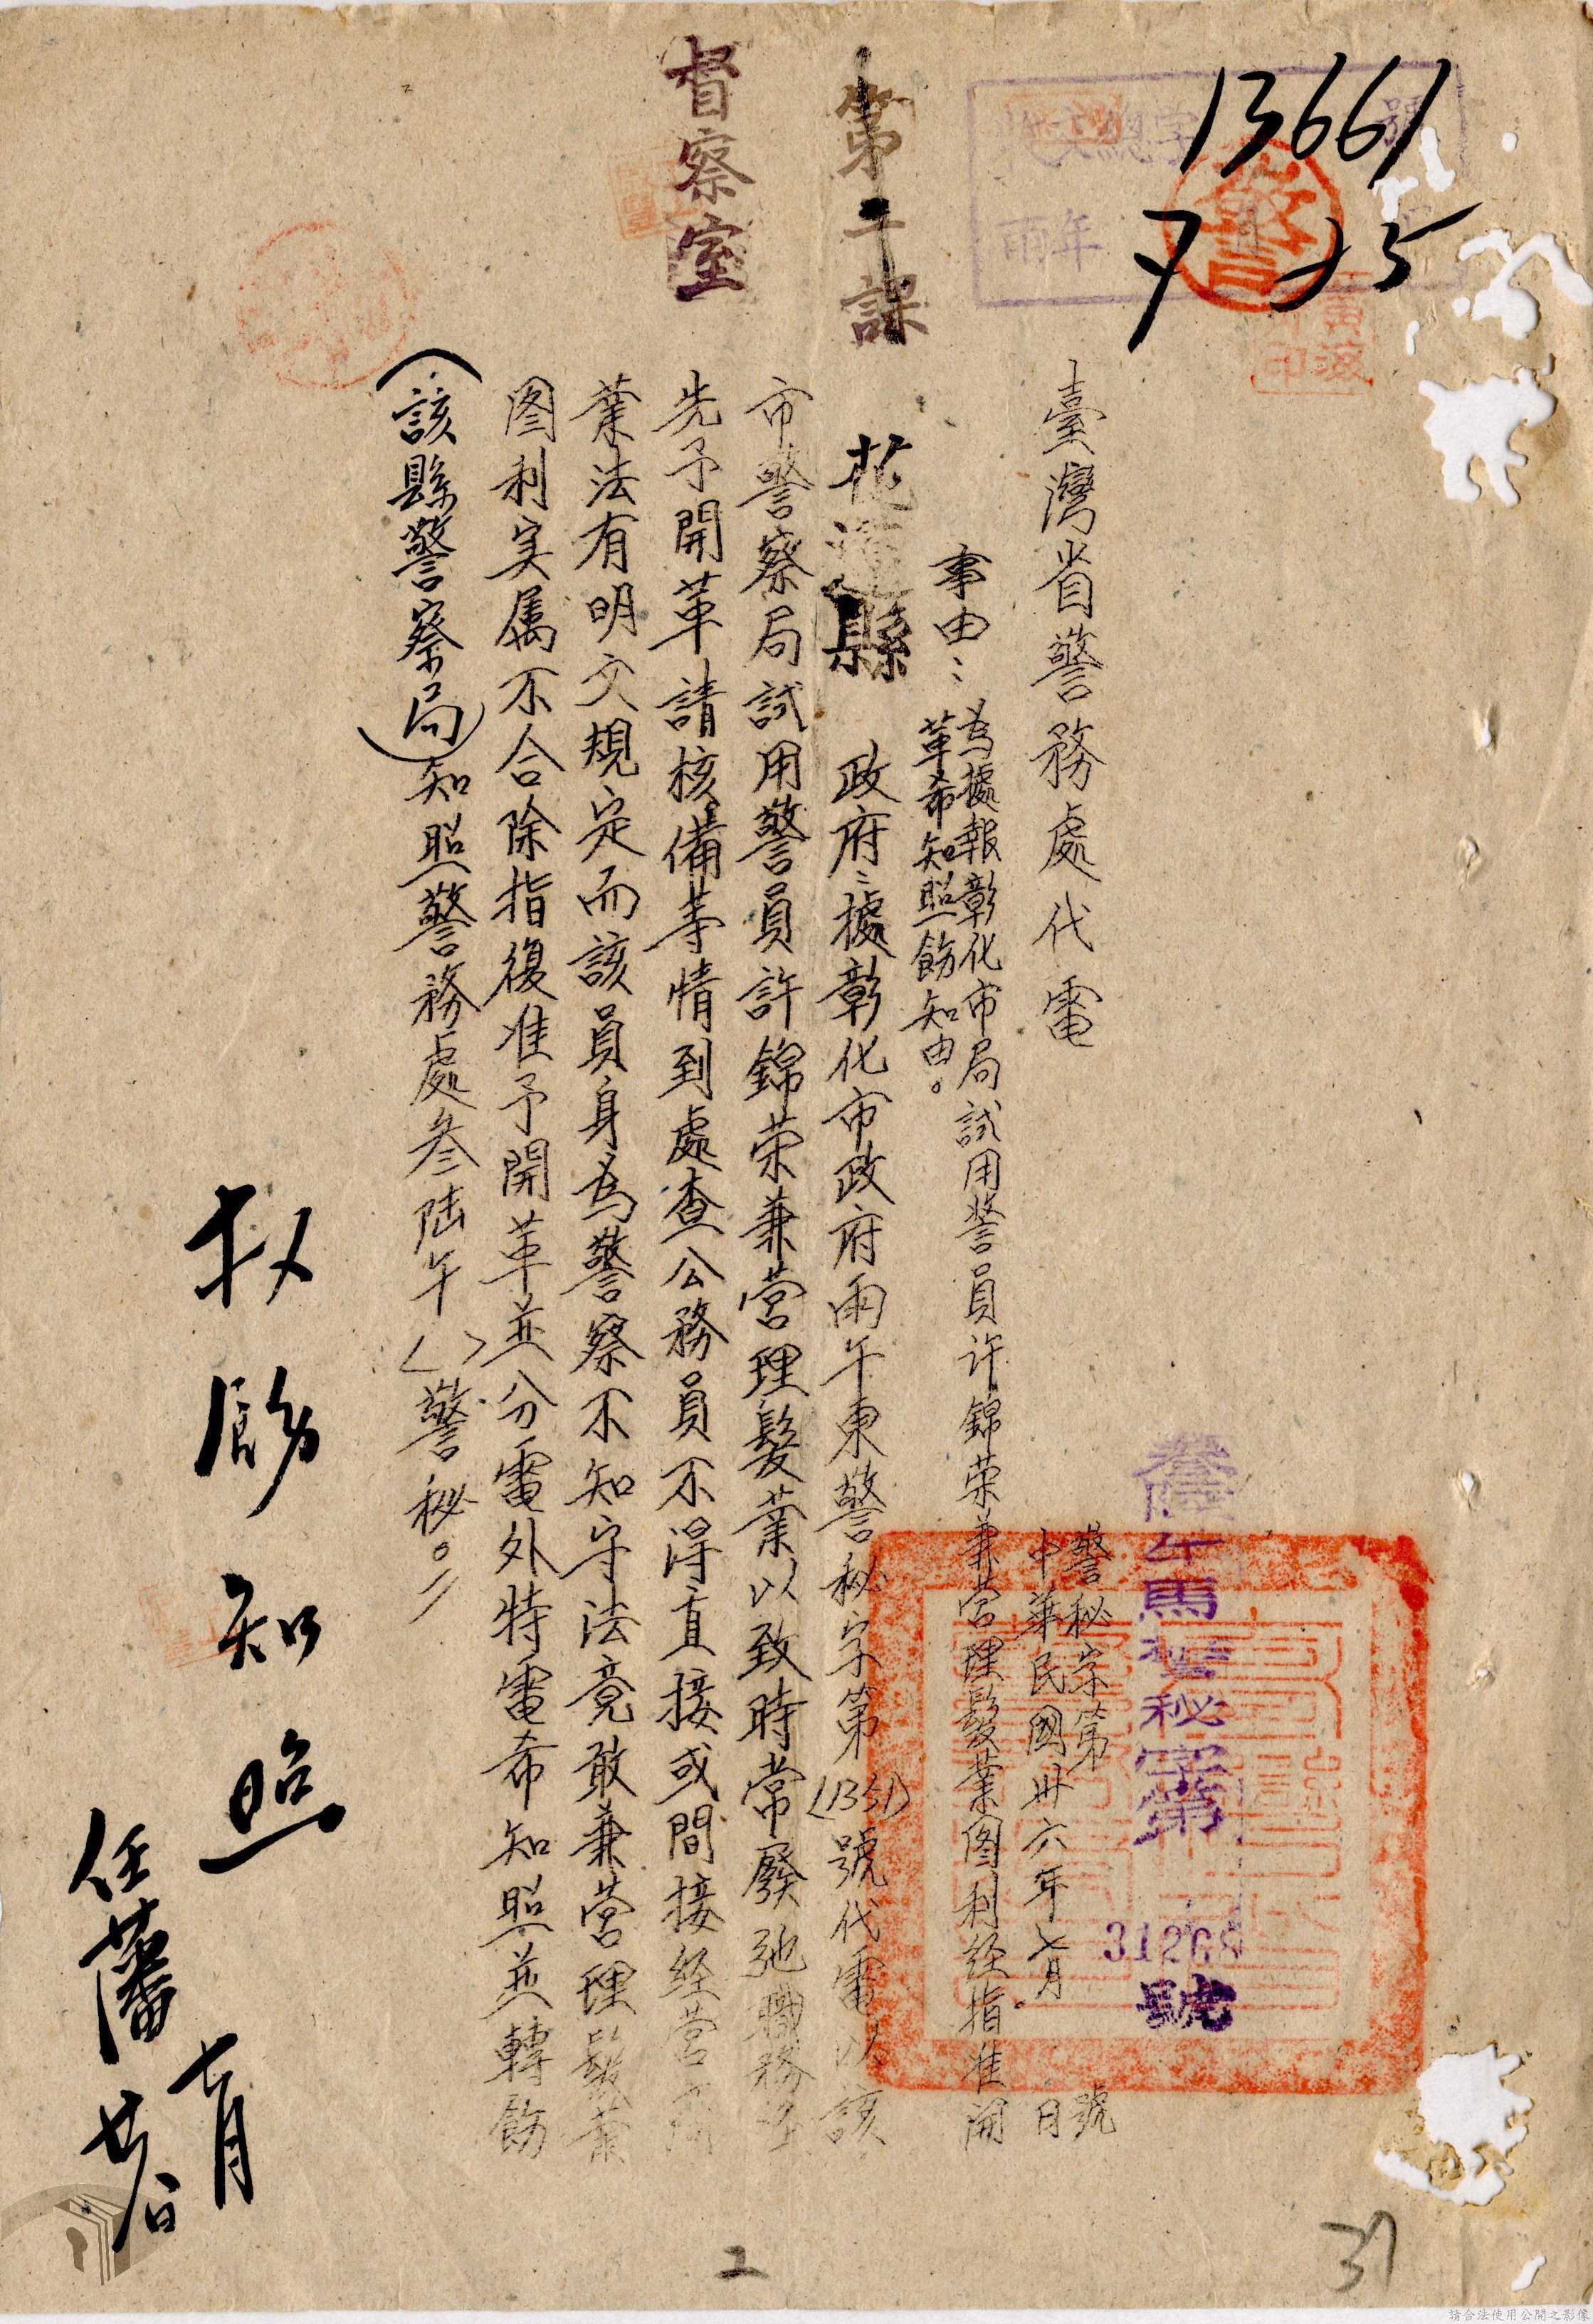 13661
7 25
臺灣省警務處代電
叁陸午馬警秘字第
31268
號
警秘字第 號
中華民國卅六年七月 日
事由：為據報彰化市局試用警員许錦荣兼营理髮業图利经指准開
革希知照飭知由。
第二課
督察室
花蓮縣 政府：據彰化市政府雨午東警秘字第(1351)號代電以該
市警察局試用警員許錦荣兼营理髮業以致時常廢弛職務
先予開革請核備等情到處查公務員不得直接或間接经营商
業法有明文規定而該員身為警察不知守法竟敢兼营理髮業
图利实属不合除指復准予開革並分電外特電希知照並轉飭
（該縣警察局）知照警務處叁陆午〈 〉警秘。
飭知照
七月
任藩
37
2
請合法使用公開之影像